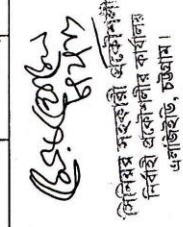 সিনিয়র সহকারী প্রকৌশলী
নির্বাহী প্রকৌশলীর কার্যালয়
এলজিইডি, চট্টগ্রাম।